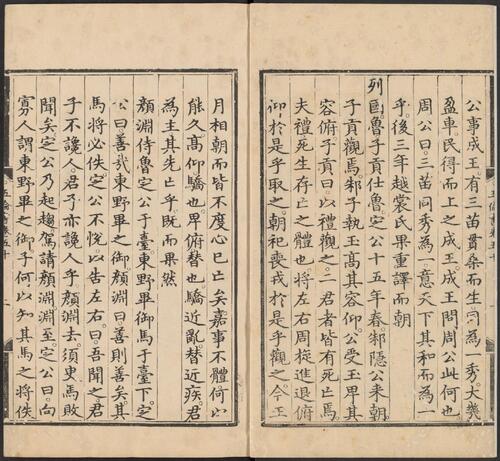 公事成王有三苗貫桑而生同為一秀大幾
盈車民得而上之成王成王問周公此何也
周公曰三苗同秀為一意天下其和而為一
乎後三年越裳氏果重譯而朝
列國魯子貢仕魯定公十五年春邾隱公來朝
子貢觀焉邾子執玉高其容仰公受玉卑其
容俯子貢曰以禮觀之二君者皆有死亡焉
夫禮死生存亡之體也將左右周旋進退俯
仰於是乎取之朝祀喪戎於是乎觀之今正
月相朝而皆不度心已亡矣嘉事不體何以
能久高仰驕也卑俯替也驕近亂替近疾君
為主其先亡乎既而果然
顏淵侍魯定公于臺東野畢御馬于臺下定
公曰善哉東野畢之御顏淵曰善則善矣其
馬將必佚定公不悅以告左右曰吾聞之君
子不讒人君子亦讒人乎顏淵去須臾馬敗
聞矣定公乃起趨駕請顏淵淵至定公曰向
寡人謂東野畢之御子何以知其馬之將佚